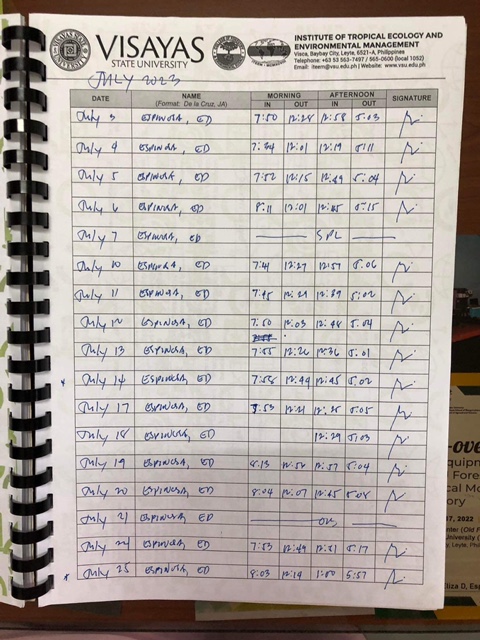 VISAYAS
STATE UNIVERSITY
INSTITUTE OF TROPICAL ECOLOGY AND
ENVIRONMENTAL MANAGEMENT
Visca, Baybay City, Leyte, 6521-A, Philippines
Telephone: +63 53 563-7497 / 565-0600 (local 1052)
Email: iteem@vsu.edu.ph | Website: www.vsu.edu.ph
JULY 2023
DATE NAME (Format: De la Cruz, JA) MORNING IN OUT AFTERNOON IN OUT SIGNATURE
July 3 ESPINOSA, ED 7:50 12:28 12:58 5:03
July 4 ESPINOSA, ED 12:01 12:19 5:11
July 5 ESPINOSA, ED 7:52 12:15 12:49 5:04
July 6 ESPINOSA, ED 8:11 12:01 5:15
July 7 ESPINOSA, ED SPL
July 10 ESPINOSA, ED 7:41 12:27 12:57 5:06
July 11 ESPINOSA, ED 7:45 12:39 5:02
July 12 ESPINOSA, ED 7:50 12:03 12:48 5:04
July 13 ESPINOSA, ED 7:55 12:26 12:36 5:01
* July 14 ESPINOSA, ED 7:58 12:44 12:45 5:02
July 17 ESPINOSA, ED 7:53 12:21 5:05
July 18 ESPINOSA, ED 12:29 5:03
July 19 ESPINOSA, ED 8:13 12:56 12:57 5:04
July 20 ESPINOSA, ED 8:04 12:07 12:45 5:08
July 21 ESPINOSA, ED
July 24 ESPINOSA, ED 7:53 12:49 12:51 5:17
* July 25 ESPINOSA, ED 8:03 12:14 1:00 5:57
17, 2022